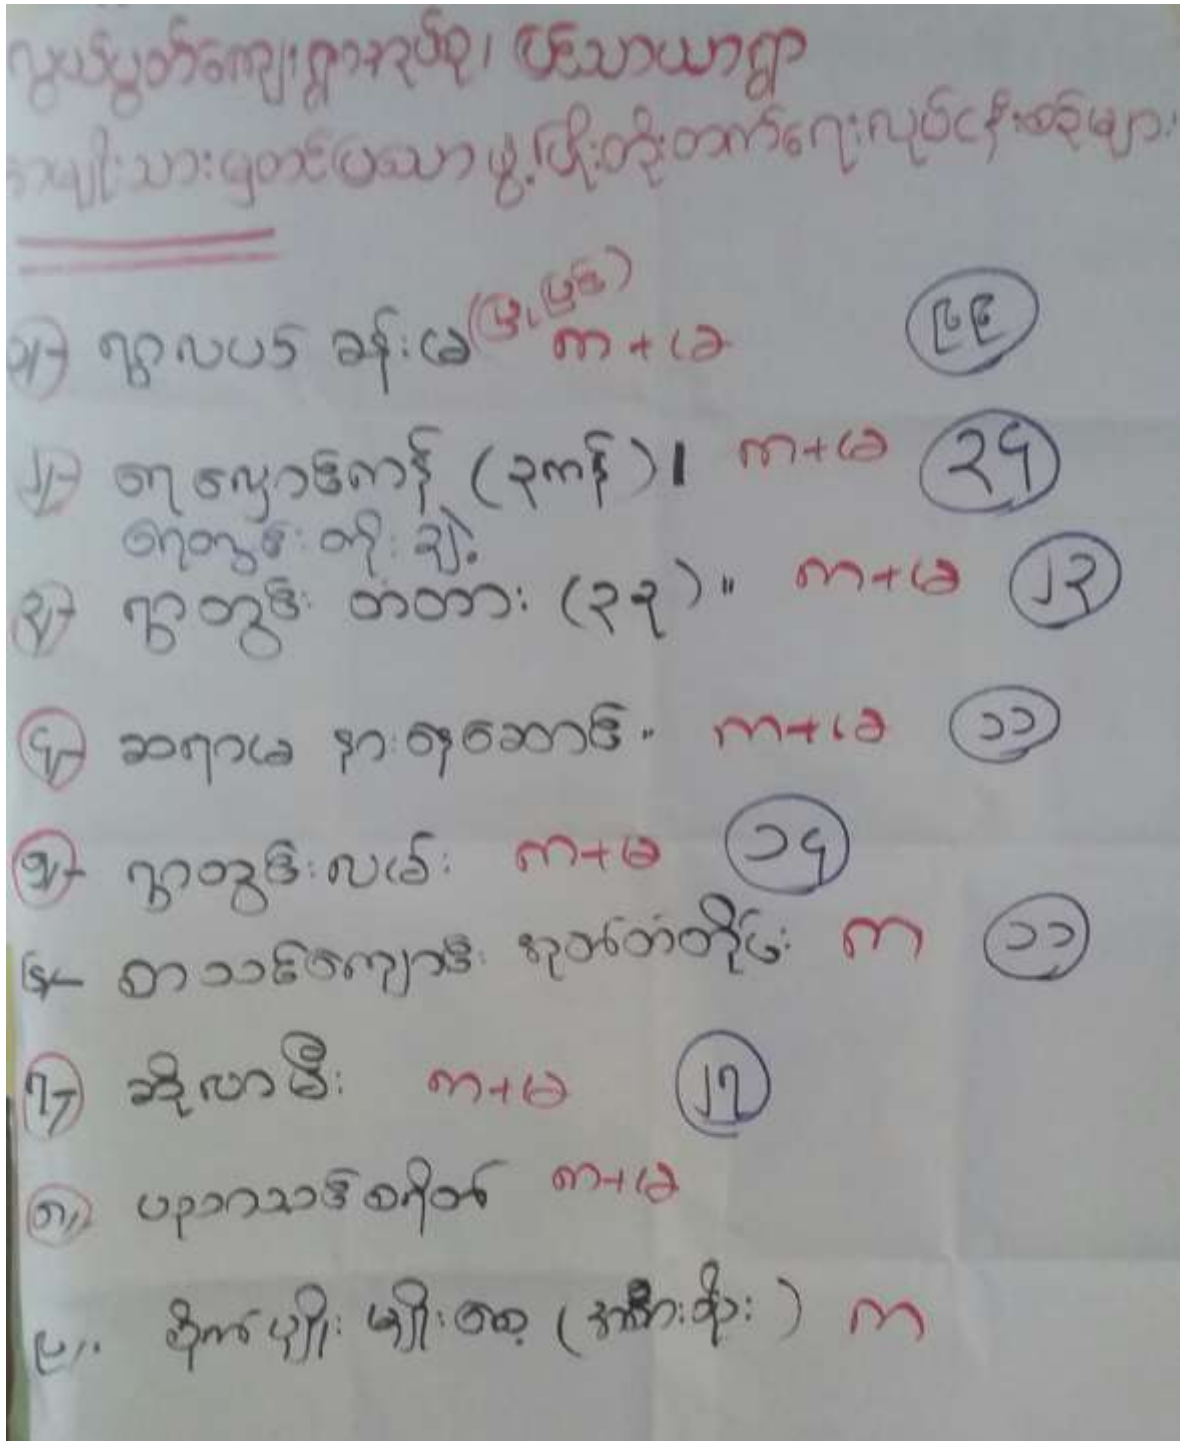 လွယ်ပွတ်ကျေးရွာအုပ်စု၊ ပင်သာယာရွာ
အမျိုးသားမှတင်ပြသော ဖွံ့ဖြိုးတိုးတက်ရေးလုပ်ငန်းစဉ်များ
(ပြုပြင်)
၁။ ရွာလယ် ခန်းမ က+ခ ၉၉
၂။ ရေလှောင်ကန် (၃ကန်)၊ က+ခ ၃၄
ရေတွင်း တိုးချဲ့
၃။ ရွာတွင်း တံတား (၃ခု)။ က+ခ ၂၃
၄။ ဆရာမ နားနေဆောင်။ က+ခ ၁၁
၅။ ရွာတွင်းလမ်း က+ခ ၁၄
၆။ စာသင်ကျောင်း အုတ်တံတိုင်း က ၁၁
၇။ ဆိုလာမီး က+ခ ၂၇
၈။ ပညာသင်စရိတ် က+ခ
၉။ စိုက်ပျိုး မျိုးစေ့ က